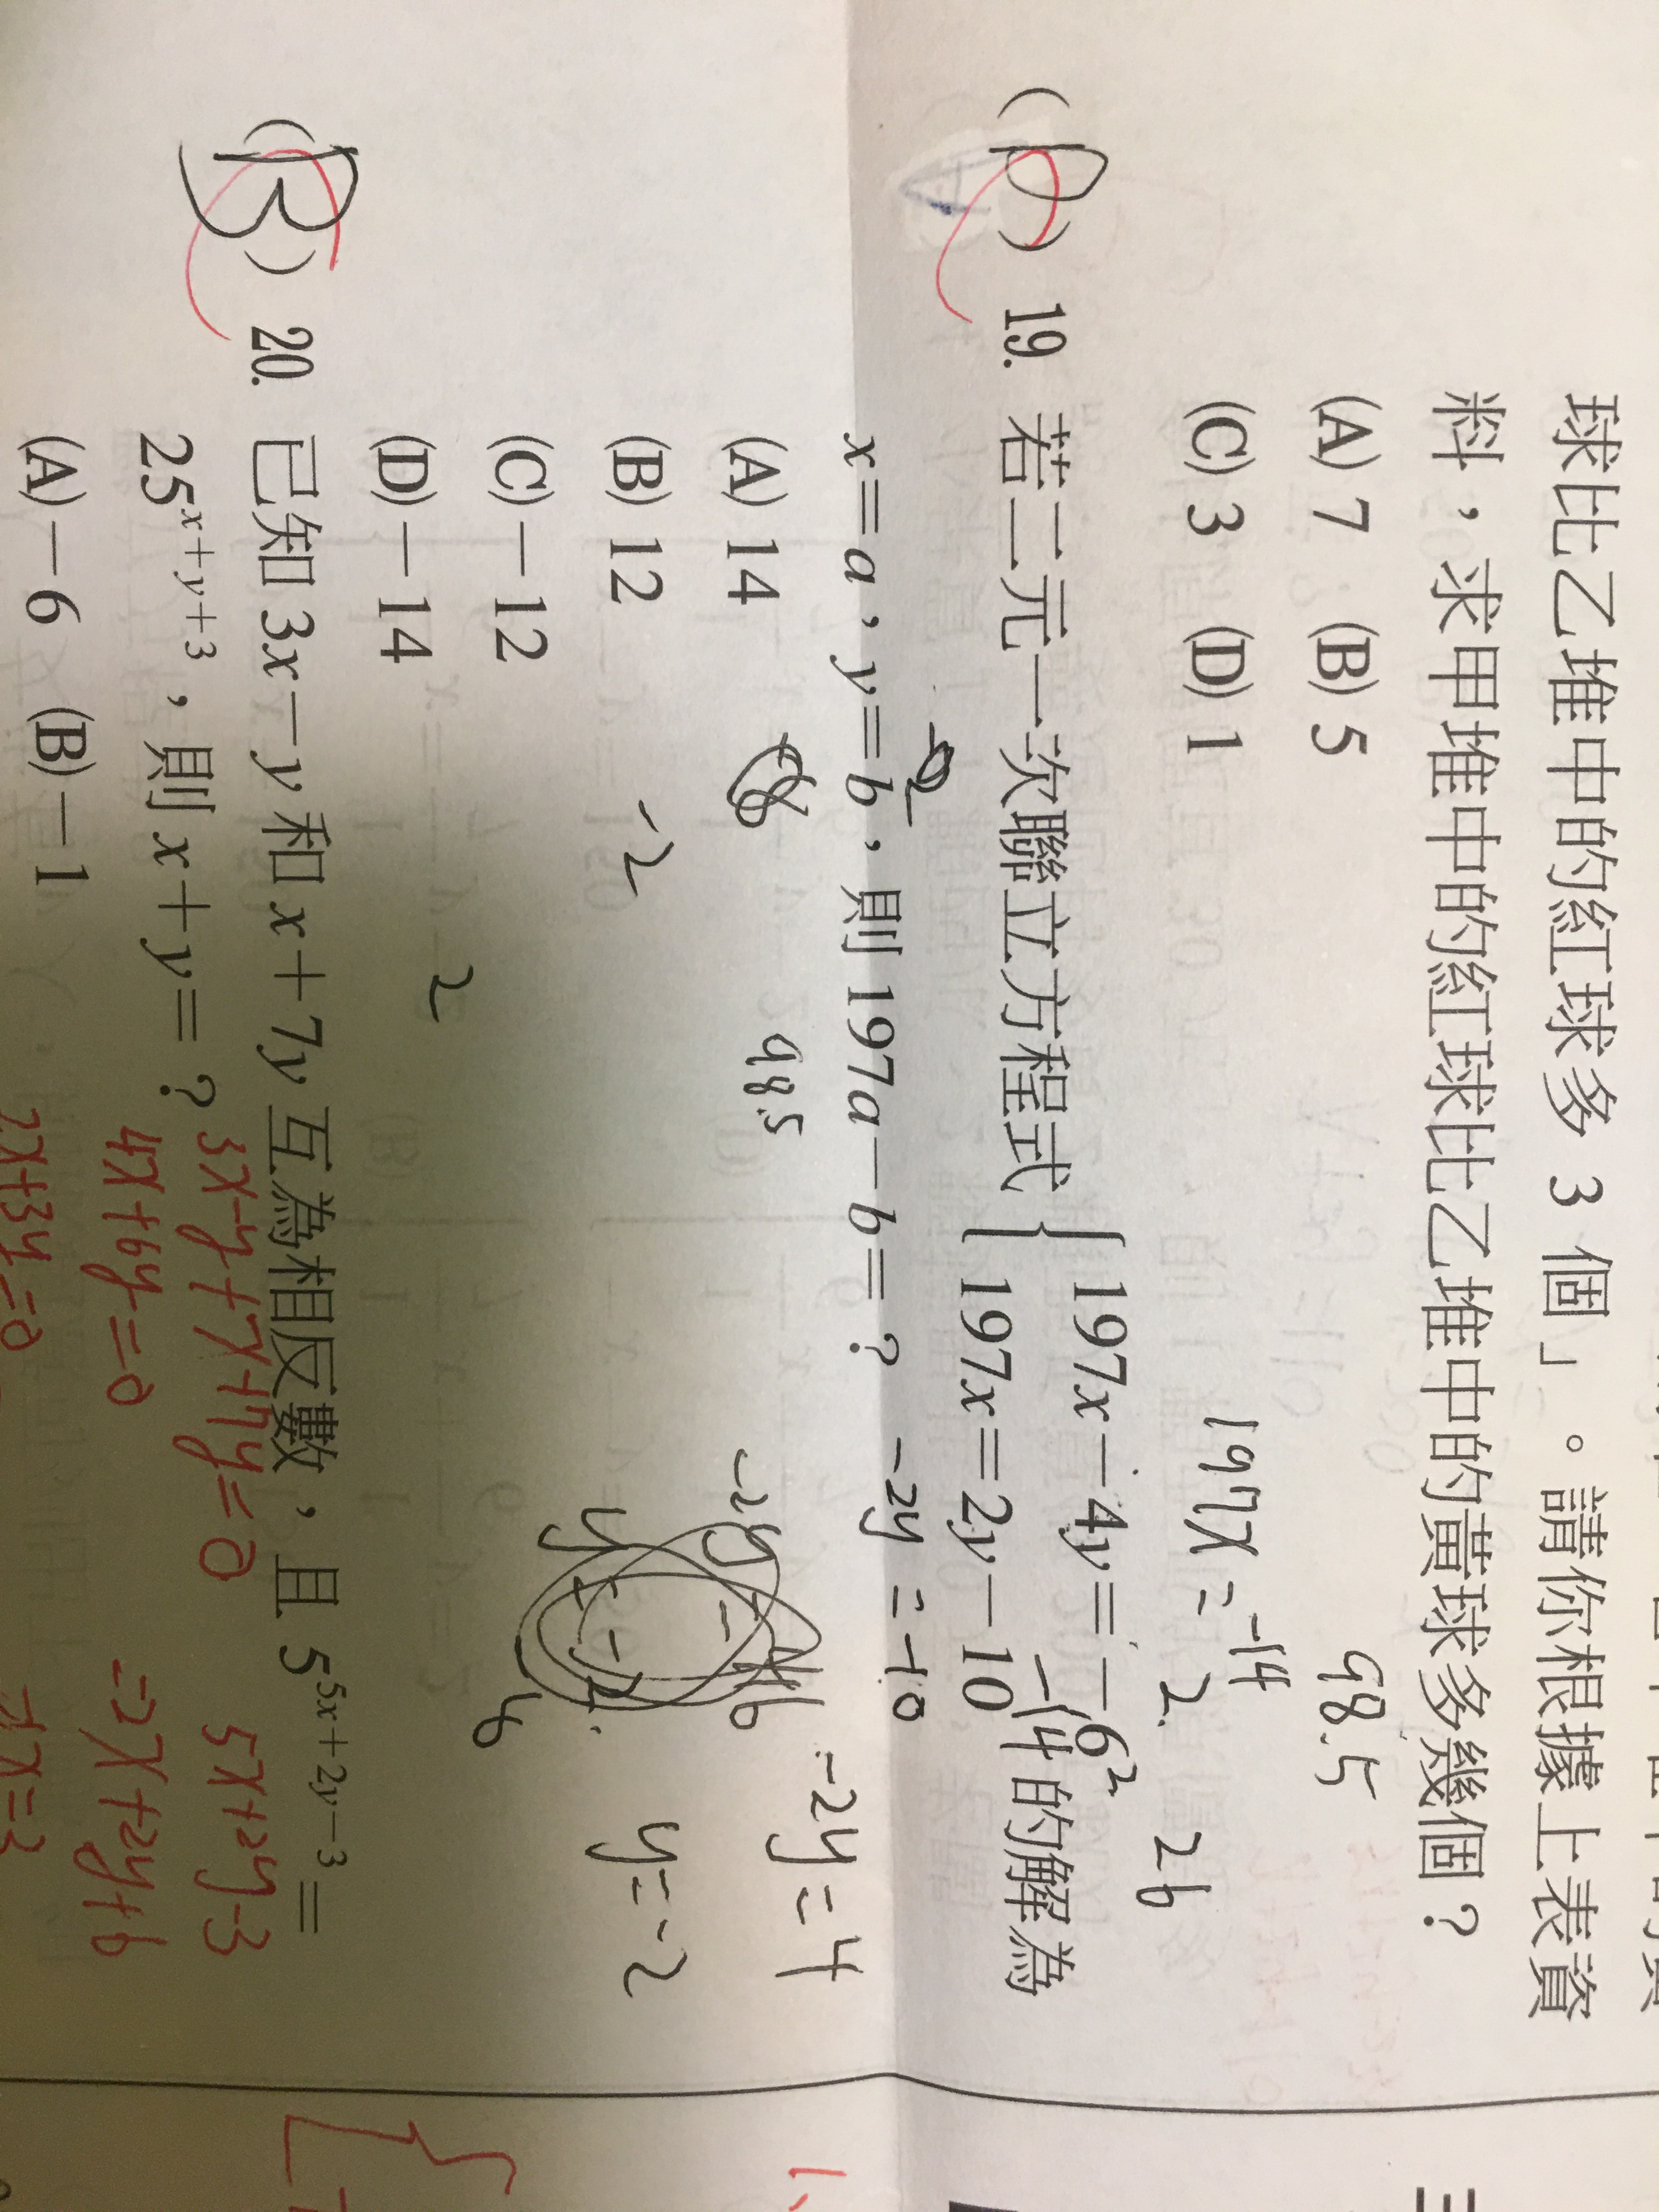 球比乙堆中的紅球多 3 個」。請你根據上表資
料，求甲堆中的紅球比乙堆中的黃球多幾個？
(A) 7 (B) 5 98.5
(C) 3 (D) 1 197x = -14 2. 26
(D) 19. 若二元一次聯立方程式 { 197x－4y＝－6 2
197x＝2y－10 -14 的解為
x＝a，y＝b，則 197a－b＝？ -2y = -10
(A) 14 98.5 -2y = 4
(B) 12 -2 y = -2
(C)－12
(D)－14 2
(B) 20. 已知 3x－y 和 x＋7y 互為相反數，且 5^{5x＋2y－3}＝
25^{x＋y＋3}，則 x＋y＝？ 3x-y+x+7y=0 5x+2y-3
4x+6y=0 =2x+2y+6
(A)－6 (B)－1 2x+3y=0